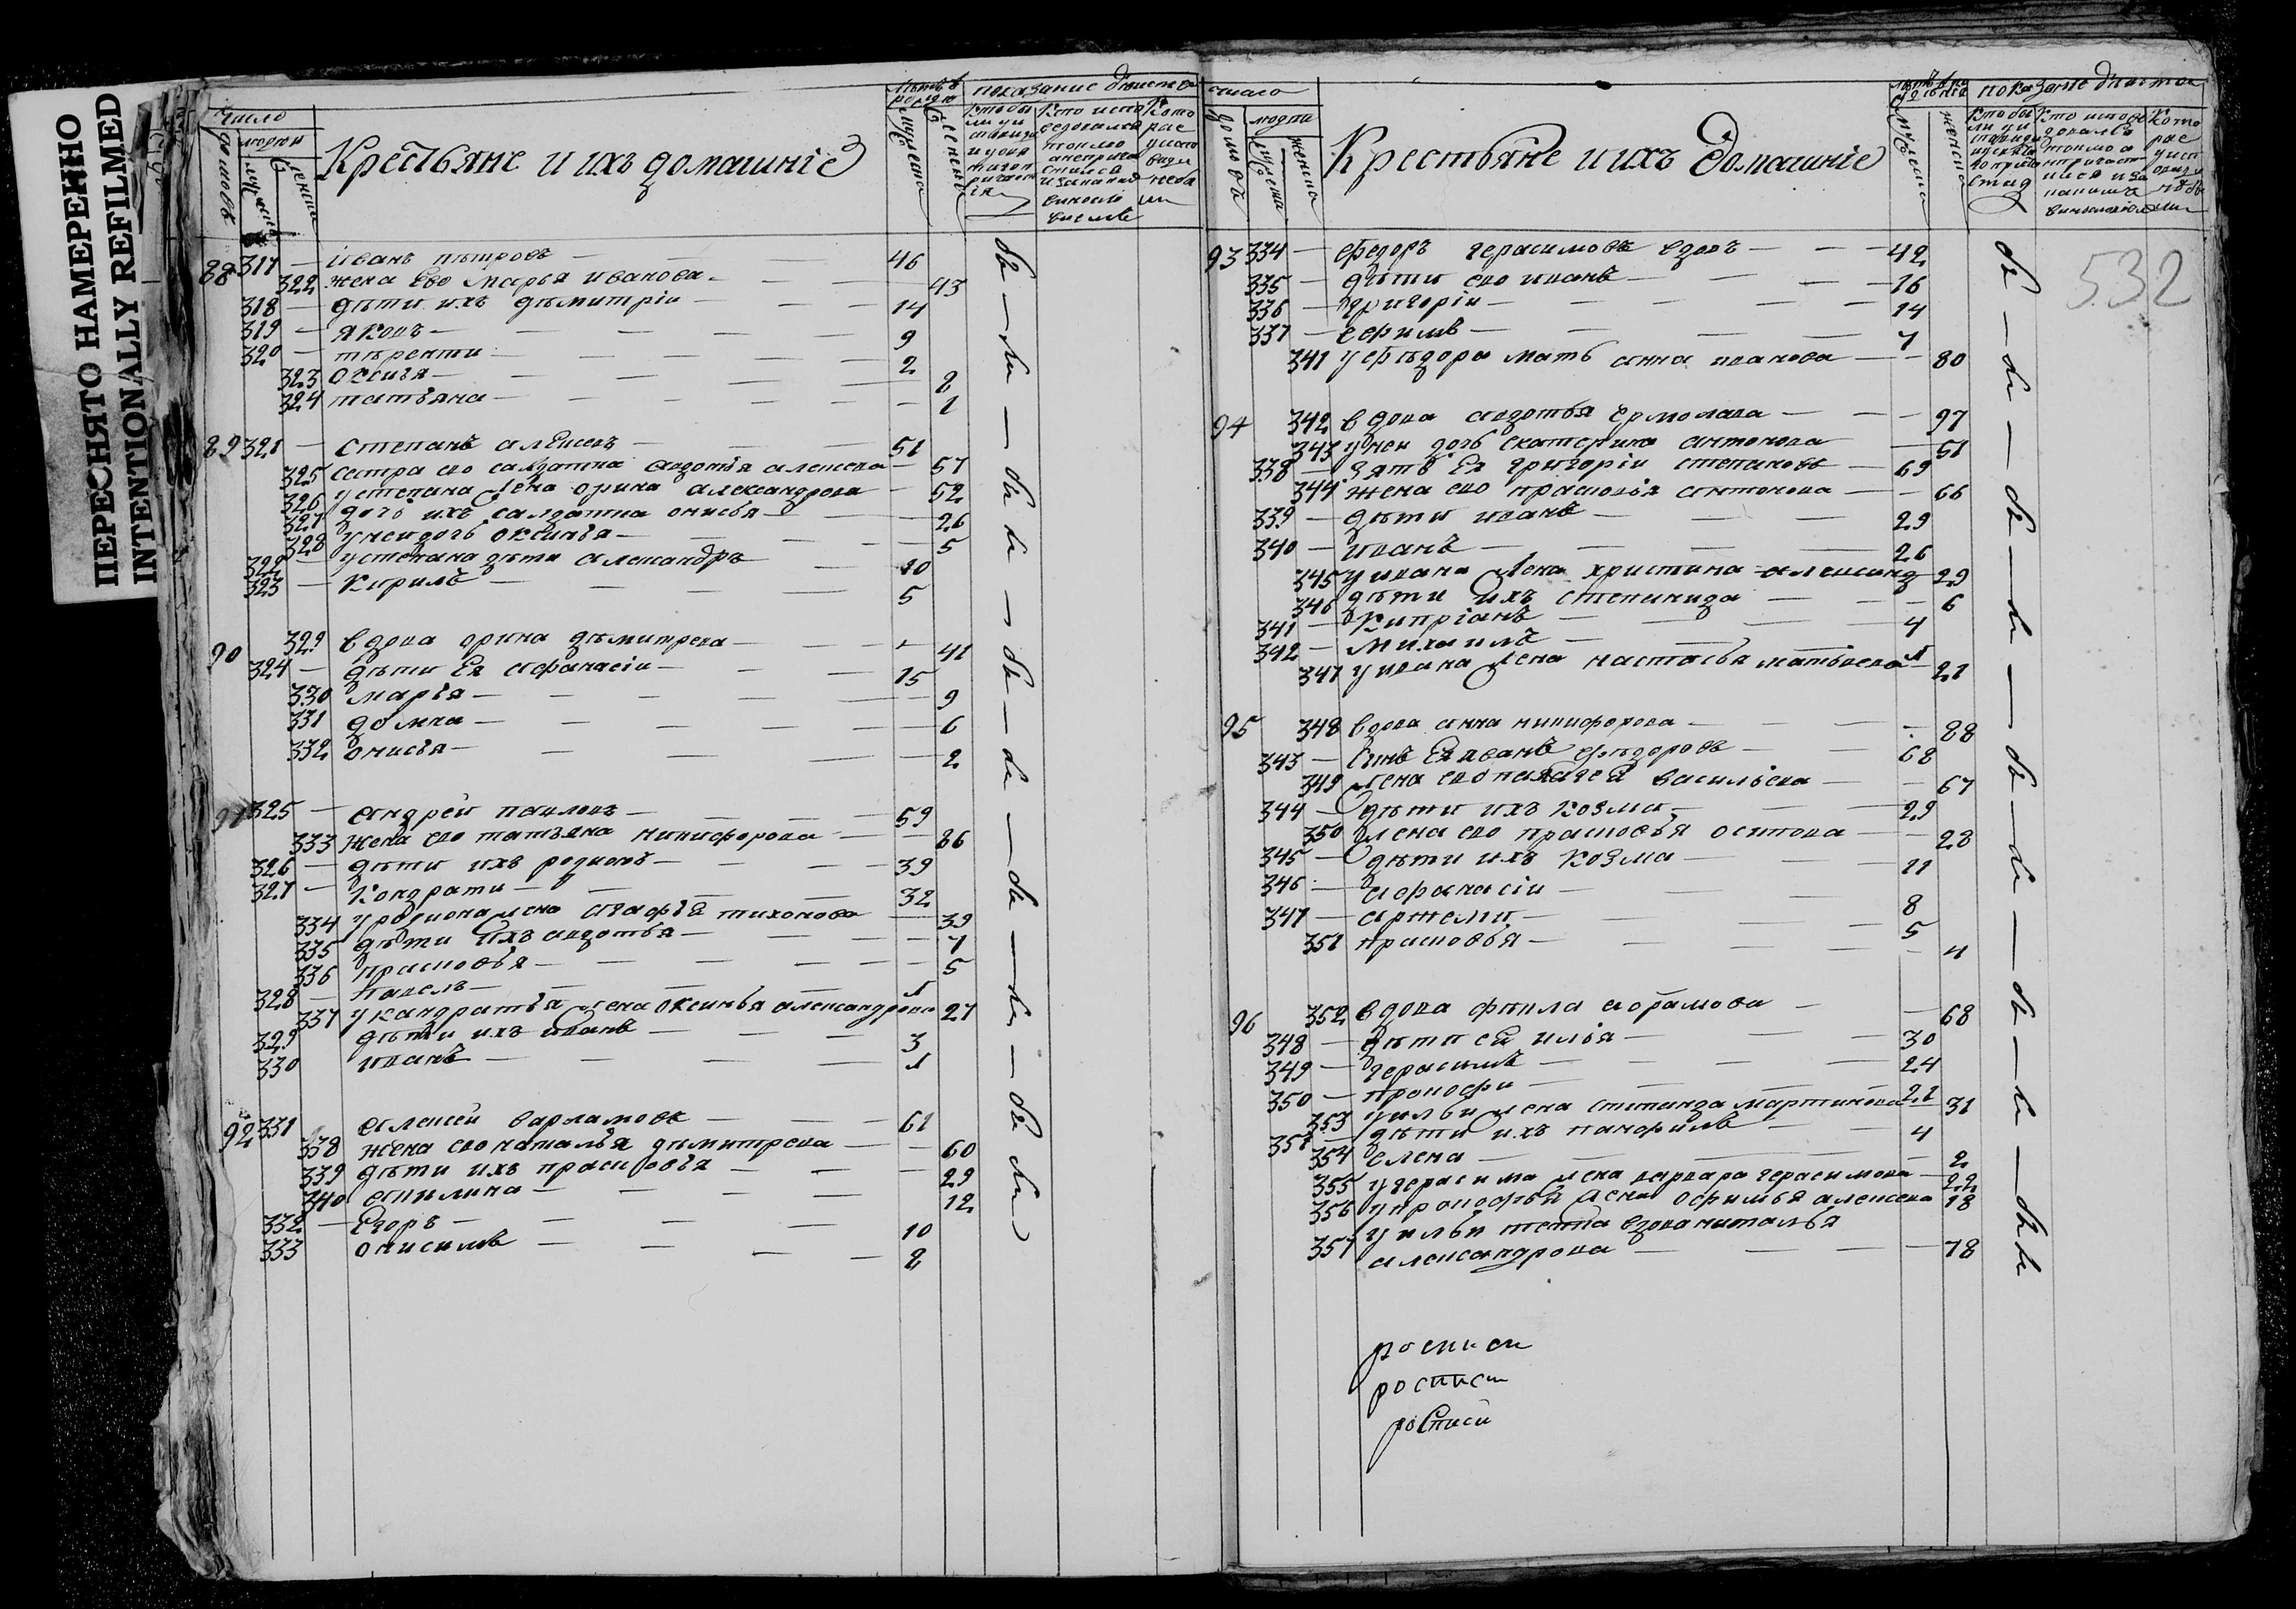 ПЕРЕСНЯТО НАМЕРЕННО
INTENTIONALLY REFILMED
число
людей
Крестьяне и ихъ домашніе
показание
88 317 — иванъ петровъ — 46
322 жена ево марья иванова — 43
318 — дѣти ихъ дѣмитріи — 14
319 — яковъ — 9
320 — тѣренти — 2
323 — 2
324 татьяна — 1
89 321 — степанъ алѣѯеевъ — 51
325 сестра ево салдатка авдотья алеѯеева — 57
326 у степана жена орина алеѯандрова — 52
327 дочь ихъ салдатка онисья — 26
328 у неи дочь оксинья — 5
322 — у степана дѣти алеѯандръ — 10
323 — кирилъ — 5
90 329 вдова орина дѣмитрева — 41
324 — дѣти ея афанасіи — 15
330 марія — 9
331 домна — 6
332 онисья — 2
91 325 — андреи павловъ — 59
333 жена ево татьяна никифорова — 86
326 — дѣти ихъ родионъ — 39
327 — кондрати — 32
334 у родиона жена агафья тихонова — 39
335 дѣти ихъ авдотья — 7
336 прасковья — 5
328 — павелъ — 1
337 у кандратья жена оксинья алеѯандрова 27
329 дѣти ихъ иванъ — 3
330 иванъ — 1
92 331 алеѯеи варламовъ — 61
338 жена ево наталья димитрева — 60
339 дѣти ихъ прасковья — 29
340 акилина — 12
332 — Егоръ — 10
333 онисимъ — 2
число
людеи
Крестьяне и ихъ домашніе
показание
532
93 334 — Федоръ герасимовъ вдовъ — 42
335 — дѣти ево иванъ — 16
336 — григоріи — 14
337 — ефимъ — 7
341 у федора мать анна иванова — 80
94 342 вдова авдотья ермолаева — 97
343 у неи дочь екатерина антонова — 51
338 — зять ея григоріи степановъ — 69
344 жена ево прасковья антонова — 66
339 — дѣти иванъ — 29
340 — иванъ — 26
345 у ивана жена христина алеѯанд — 29
346 дѣти ихъ степанида — 6
341 — киприанъ — 4
342 — михаилъ — 1
347 у ивана жена настасья матвеева — 21
95 348 вдова анна никифорова — 88
343 — сынъ ея иванъ фѣдоровъ — 68
349 жена ево васильева — 67
344 — дѣти ихъ козма — 29
350 жена ево прасковья осипова — 28
345 — дѣти ихъ козма — 11
346 — афанасіи — 8
347 — артеми — 5
351 прасковья — 4
96 352 вдова фекла абрамова — 68
348 — дѣти ея илья — 30
349 — герасимъ — 24
350 — прокофи — 21
353 у ильи жена степанида мартинова 31
351 — дѣти ихъ панфилъ — 4
354 елена — 2
355 у герасима жена варвара герасимова — 22
356 у прокофья жена офимья алеѯеева 18
357 у ильи тетка вдова наталья
алеѯандрова — 78
росписи
росписи
росписи